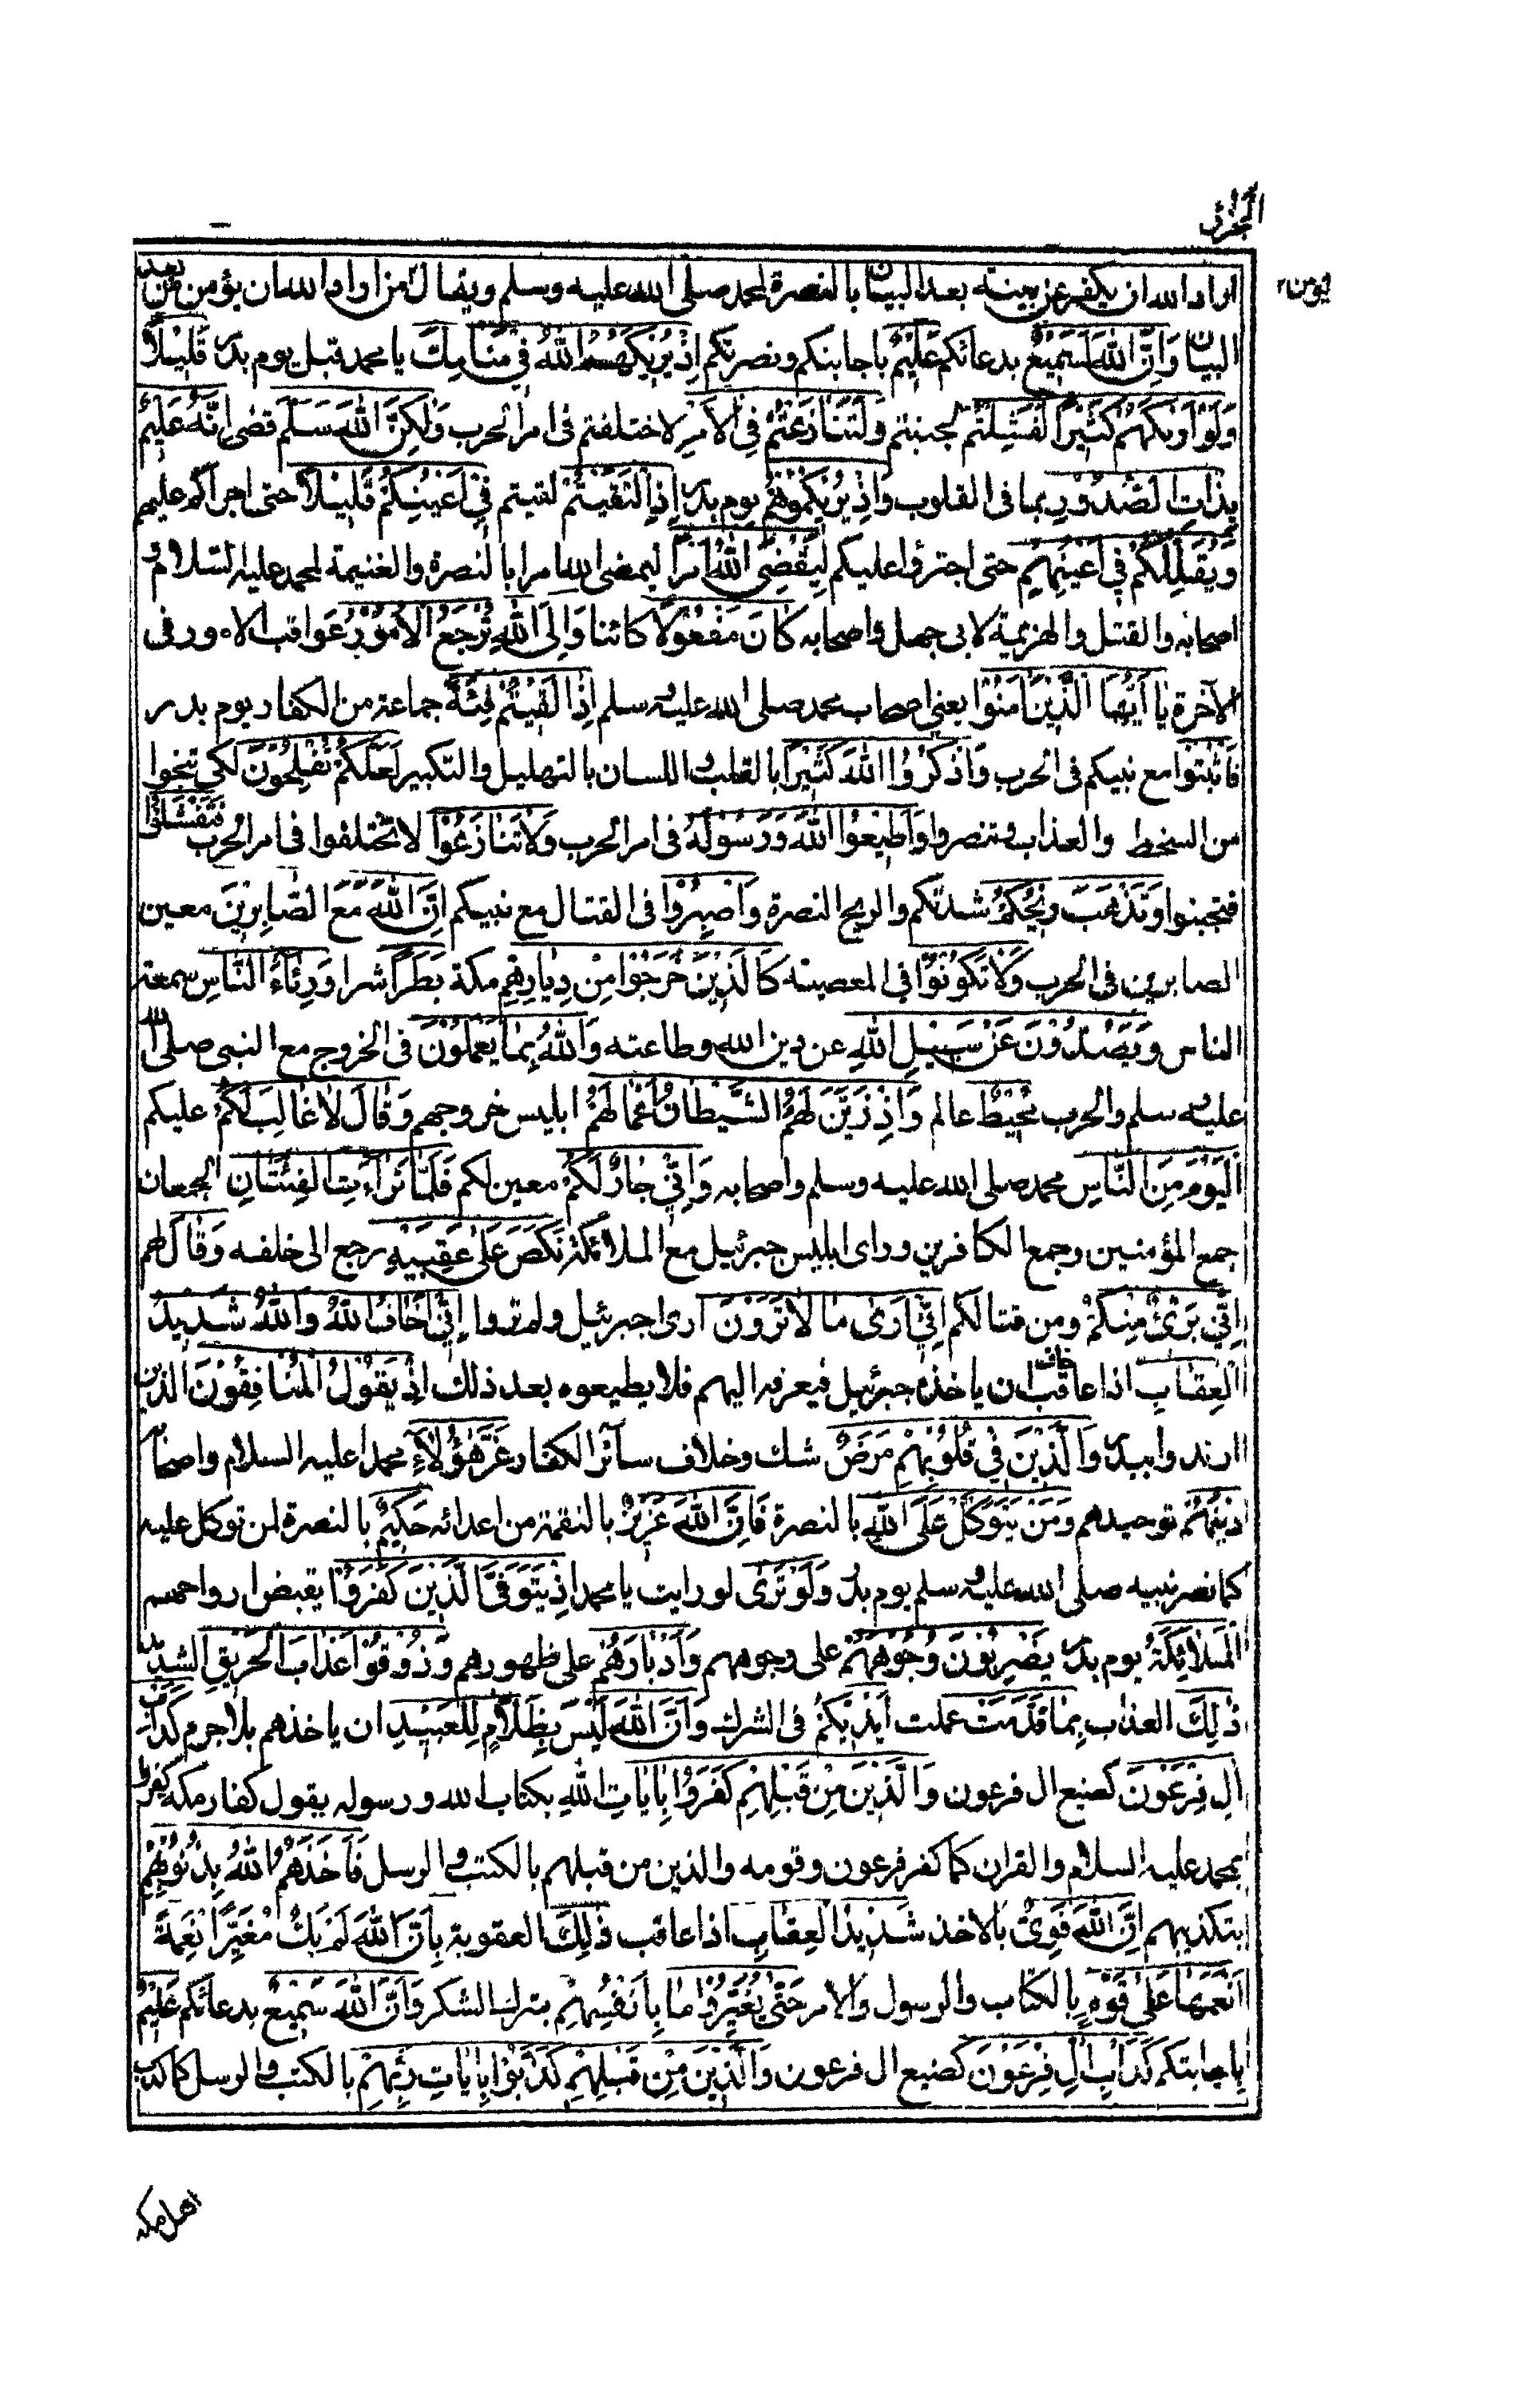 يؤمن٢
اراد الله ان يكفر عن بينة بعد البيان بالنصرة لمحمد صلى الله عليه وسلم ويقال من اراد الله ان يؤمن من بعد
البيان وَاِنَّ اللّٰهَ لَسَمِيْعٌ بدعائكم عَلِيْمٌ باجابتكم ونصرتكم اِذْ يُرِيْكَهُمُ اللّٰهُ فِيْ مَنَامِكَ يا محمد قبل يوم بدر قَلِيْلًا
وَلَوْ اَرٰىكَهُمْ كَثِيْرًا لَّفَشِلْتُمْ لجبنتم وَلَتَنَازَعْتُمْ فِي الْاَمْرِ لاختلفتم فى امر الحرب وَلٰكِنَّ اللّٰهَ سَلَّمَ قضى اِنَّهُ عَلِيْمٌ
بِذَاتِ الصُّدُوْرِ بما فى القلوب وَاِذْ يُرِيْكُمُوْهُمْ يوم بدر اِذِ الْتَقَيْتُمْ لقيتم فِيْ اَعْيُنِكُمْ قَلِيْلًا حتى اجراكم عليهم
وَيُقَلِّلُكُمْ فِيْ اَعْيُنِهِمْ حتى اجترؤا عليكم لِيَقْضِيَ اللّٰهُ اَمْرًا ليمضى الله امرا بالنصرة والغنيمة لمحمد عليه السلام و
اصحابه والقتل والهزيمة لابى جهل واصحابه كَانَ مَفْعُوْلًا كائنا وَاِلَى اللّٰهِ تُرْجَعُ الْاُمُوْرُ عواقب الامور فى
الآخرة يَا اَيُّهَا الَّذِيْنَ اٰمَنُوْا يعنى اصحاب محمد صلى الله عليه وسلم اِذَا لَقِيْتُمْ فِئَةً جماعة من الكفار يوم بدر
فَاثْبُتُوْا مع نبيكم فى الحرب وَاذْكُرُوا اللّٰهَ كَثِيْرًا بالقلب واللسان بالتهليل والتكبير لَعَلَّكُمْ تُفْلِحُوْنَ لكى تنجوا
من السخط والعذاب وتنصروا وَاَطِيْعُوا اللّٰهَ وَرَسُوْلَهُ فى امر الحرب وَلَا تَنَازَعُوْا لا تختلفوا فى امر الحرب فَتَفْشَلُوْا
فتجبنوا وَتَذْهَبَ رِيْحُكُمْ شدتكم والريح النصرة وَاصْبِرُوْا فى القتال مع نبيكم اِنَّ اللّٰهَ مَعَ الصَّابِرِيْنَ معين
الصابرين فى الحرب وَلَا تَكُوْنُوْا فى المعصية كَالَّذِيْنَ خَرَجُوْا مِنْ دِيَارِهِمْ مكة بَطَرًا اشرا وَرِئَاءَ النَّاسِ سمعة
الناس وَيَصُدُّوْنَ عَنْ سَبِيْلِ اللّٰهِ عن دين الله وطاعته وَاللّٰهُ بِمَا يَعْمَلُوْنَ فى الخروج مع النبى صلى الله
عليه وسلم والحرب مُحِيْطٌ عالم وَاِذْ زَيَّنَ لَهُمُ الشَّيْطَانُ اَعْمَالَهُمْ ابليس خروجهم وَقَالَ لَا غَالِبَ لَكُمُ عليكم
الْيَوْمَ مِنَ النَّاسِ محمد صلى الله عليه وسلم واصحابه وَاِنِّيْ جَارٌ لَّكُمْ معين لكم فَلَمَّا تَرَاءَتِ الْفِئَتَانِ الجمعان
جمع المؤمنين وجمع الكافرين وراى ابليس جبرئيل مع الملائكة نَكَصَ عَلٰى عَقِبَيْهِ رجع الى خلفه وَقَالَ لهم
اِنِّيْ بَرِيْءٌ مِنْكُمْ ومن قتالكم اِنِّيْ اَرٰى مَا لَا تَرَوْنَ ارى جبرئيل ولم تروا اِنِّيْ اَخَافُ اللّٰهَ وَاللّٰهُ شَدِيْدُ
الْعِقَابِ اذا عاقب خاف ان ياخذه جبرئيل فيعرفه اليهم فلا يطيعوه بعد ذلك اِذْ يَقُوْلُ الْمُنَافِقُوْنَ الذين
ارتدوا ببدر وَالَّذِيْنَ فِيْ قُلُوْبِهِمْ مَرَضٌ شك وخلاف سائر الكفار غَرَّ هٰؤُلَاءِ محمدا عليه السلام واصحابه
دِيْنُهُمْ توحيدهم وَمَنْ يَتَوَكَّلْ عَلَى اللّٰهِ بالنصرة فَاِنَّ اللّٰهَ عَزِيْزٌ بالنقمة من اعدائه حَكِيْمٌ بالنصرة لمن توكل عليه
كما نصر نبيه صلى الله عليه وسلم يوم بدر وَلَوْ تَرٰى لو رايت يا محمد اِذْ يَتَوَفَّى الَّذِيْنَ كَفَرُوْا يقبض ارواحهم
الْمَلَائِكَةُ يوم بدر يَضْرِبُوْنَ وُجُوْهَهُمْ على وجوههم وَاَدْبَارَهُمْ على ظهورهم وَذُوْقُوْا عَذَابَ الْحَرِيْقِ الشديد
ذٰلِكَ العذاب بِمَا قَدَّمَتْ عملت اَيْدِيْكُمْ فى الشرك وَاَنَّ اللّٰهَ لَيْسَ بِظَلَّامٍ لِّلْعَبِيْدِ ان ياخذهم بلا جرم كَدَاْبِ
اٰلِ فِرْعَوْنَ كصنيع ال فرعون وَالَّذِيْنَ مِنْ قَبْلِهِمْ كَفَرُوْا بِاٰيَاتِ اللّٰهِ بكتاب الله ورسوله يقول كفار مكة كفروا
بمحمد عليه السلام والقران كما كفر فرعون وقومه والذين من قبلهم بالكتب والرسل فَاَخَذَهُمُ اللّٰهُ بِذُنُوْبِهِمْ
بتكذيبهم اِنَّ اللّٰهَ قَوِيٌّ بالاخذ شَدِيْدُ الْعِقَابِ اذا عاقب ذٰلِكَ العقوبة بِاَنَّ اللّٰهَ لَمْ يَكُ مُغَيِّرًا نِّعْمَةً
اَنْعَمَهَا عَلٰى قَوْمٍ بالكتاب والرسول والامر حَتّٰى يُغَيِّرُوْا مَا بِاَنْفُسِهِمْ بترك الشكر وَاَنَّ اللّٰهَ سَمِيْعٌ بدعائكم عَلِيْمٌ
باجابتكم كَدَاْبِ اٰلِ فِرْعَوْنَ كصنيع ال فرعون وَالَّذِيْنَ مِنْ قَبْلِهِمْ كَذَّبُوْا بِاٰيَاتِ رَبِّهِمْ بالكتب والرسل كما كذب
اهل مكة